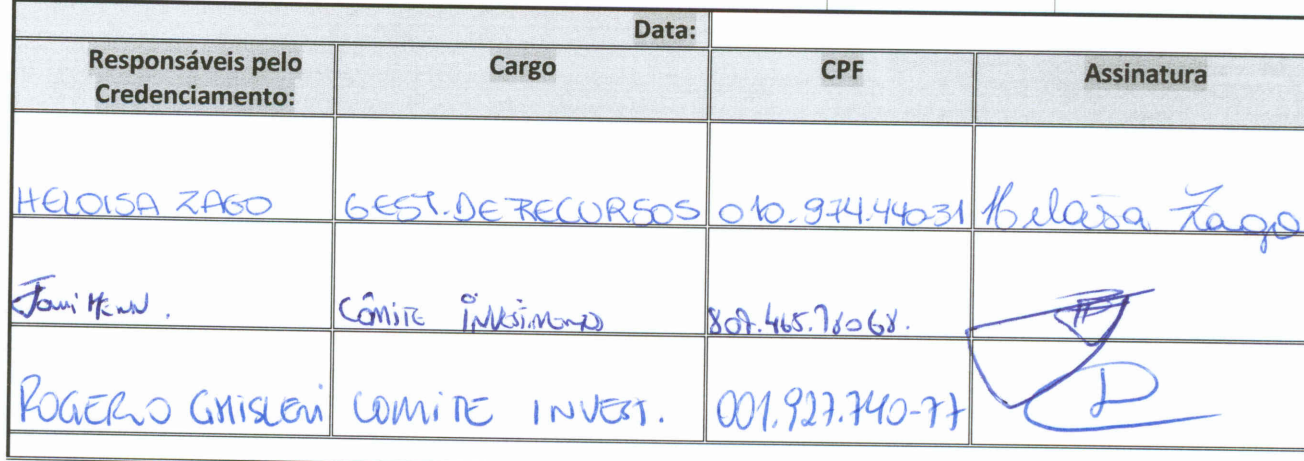 Data:
Responsáveis pelo Credenciamento: Cargo CPF Assinatura
HELOISA ZAGO GEST. DE RECURSOS 010.974.440-31 Heloisa Zago
COMITE INVESTIMENTO
ROGERIO GHISLENI COMITE INVEST. 001.927.740-77